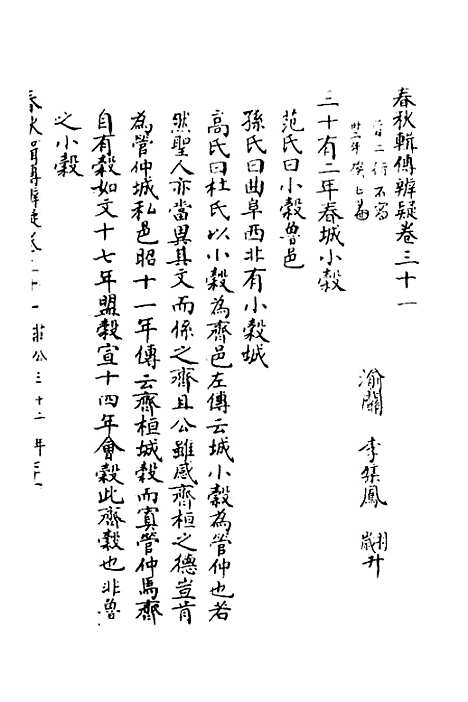 春秋輯傳辨疑卷三十一
首二行不寫
卅二年
渝關 李集鳳 翽升
三十有二年春城小穀
范氏曰小穀魯邑
孫氏曰曲阜西北有小穀城
高氏曰杜氏以小穀為齊邑左傳云城小穀為管仲也若
然聖人亦當異其文而係之齊且公雖感齊桓之德豈肯
為管仲城私邑昭十一年傳云齊桓城穀而寘管仲焉齊
自有穀如文十七年盟穀宣十四年會穀此齊穀也非魯
之小穀
春秋輯傳辨疑卷三十一 莊公三十二年 三十一